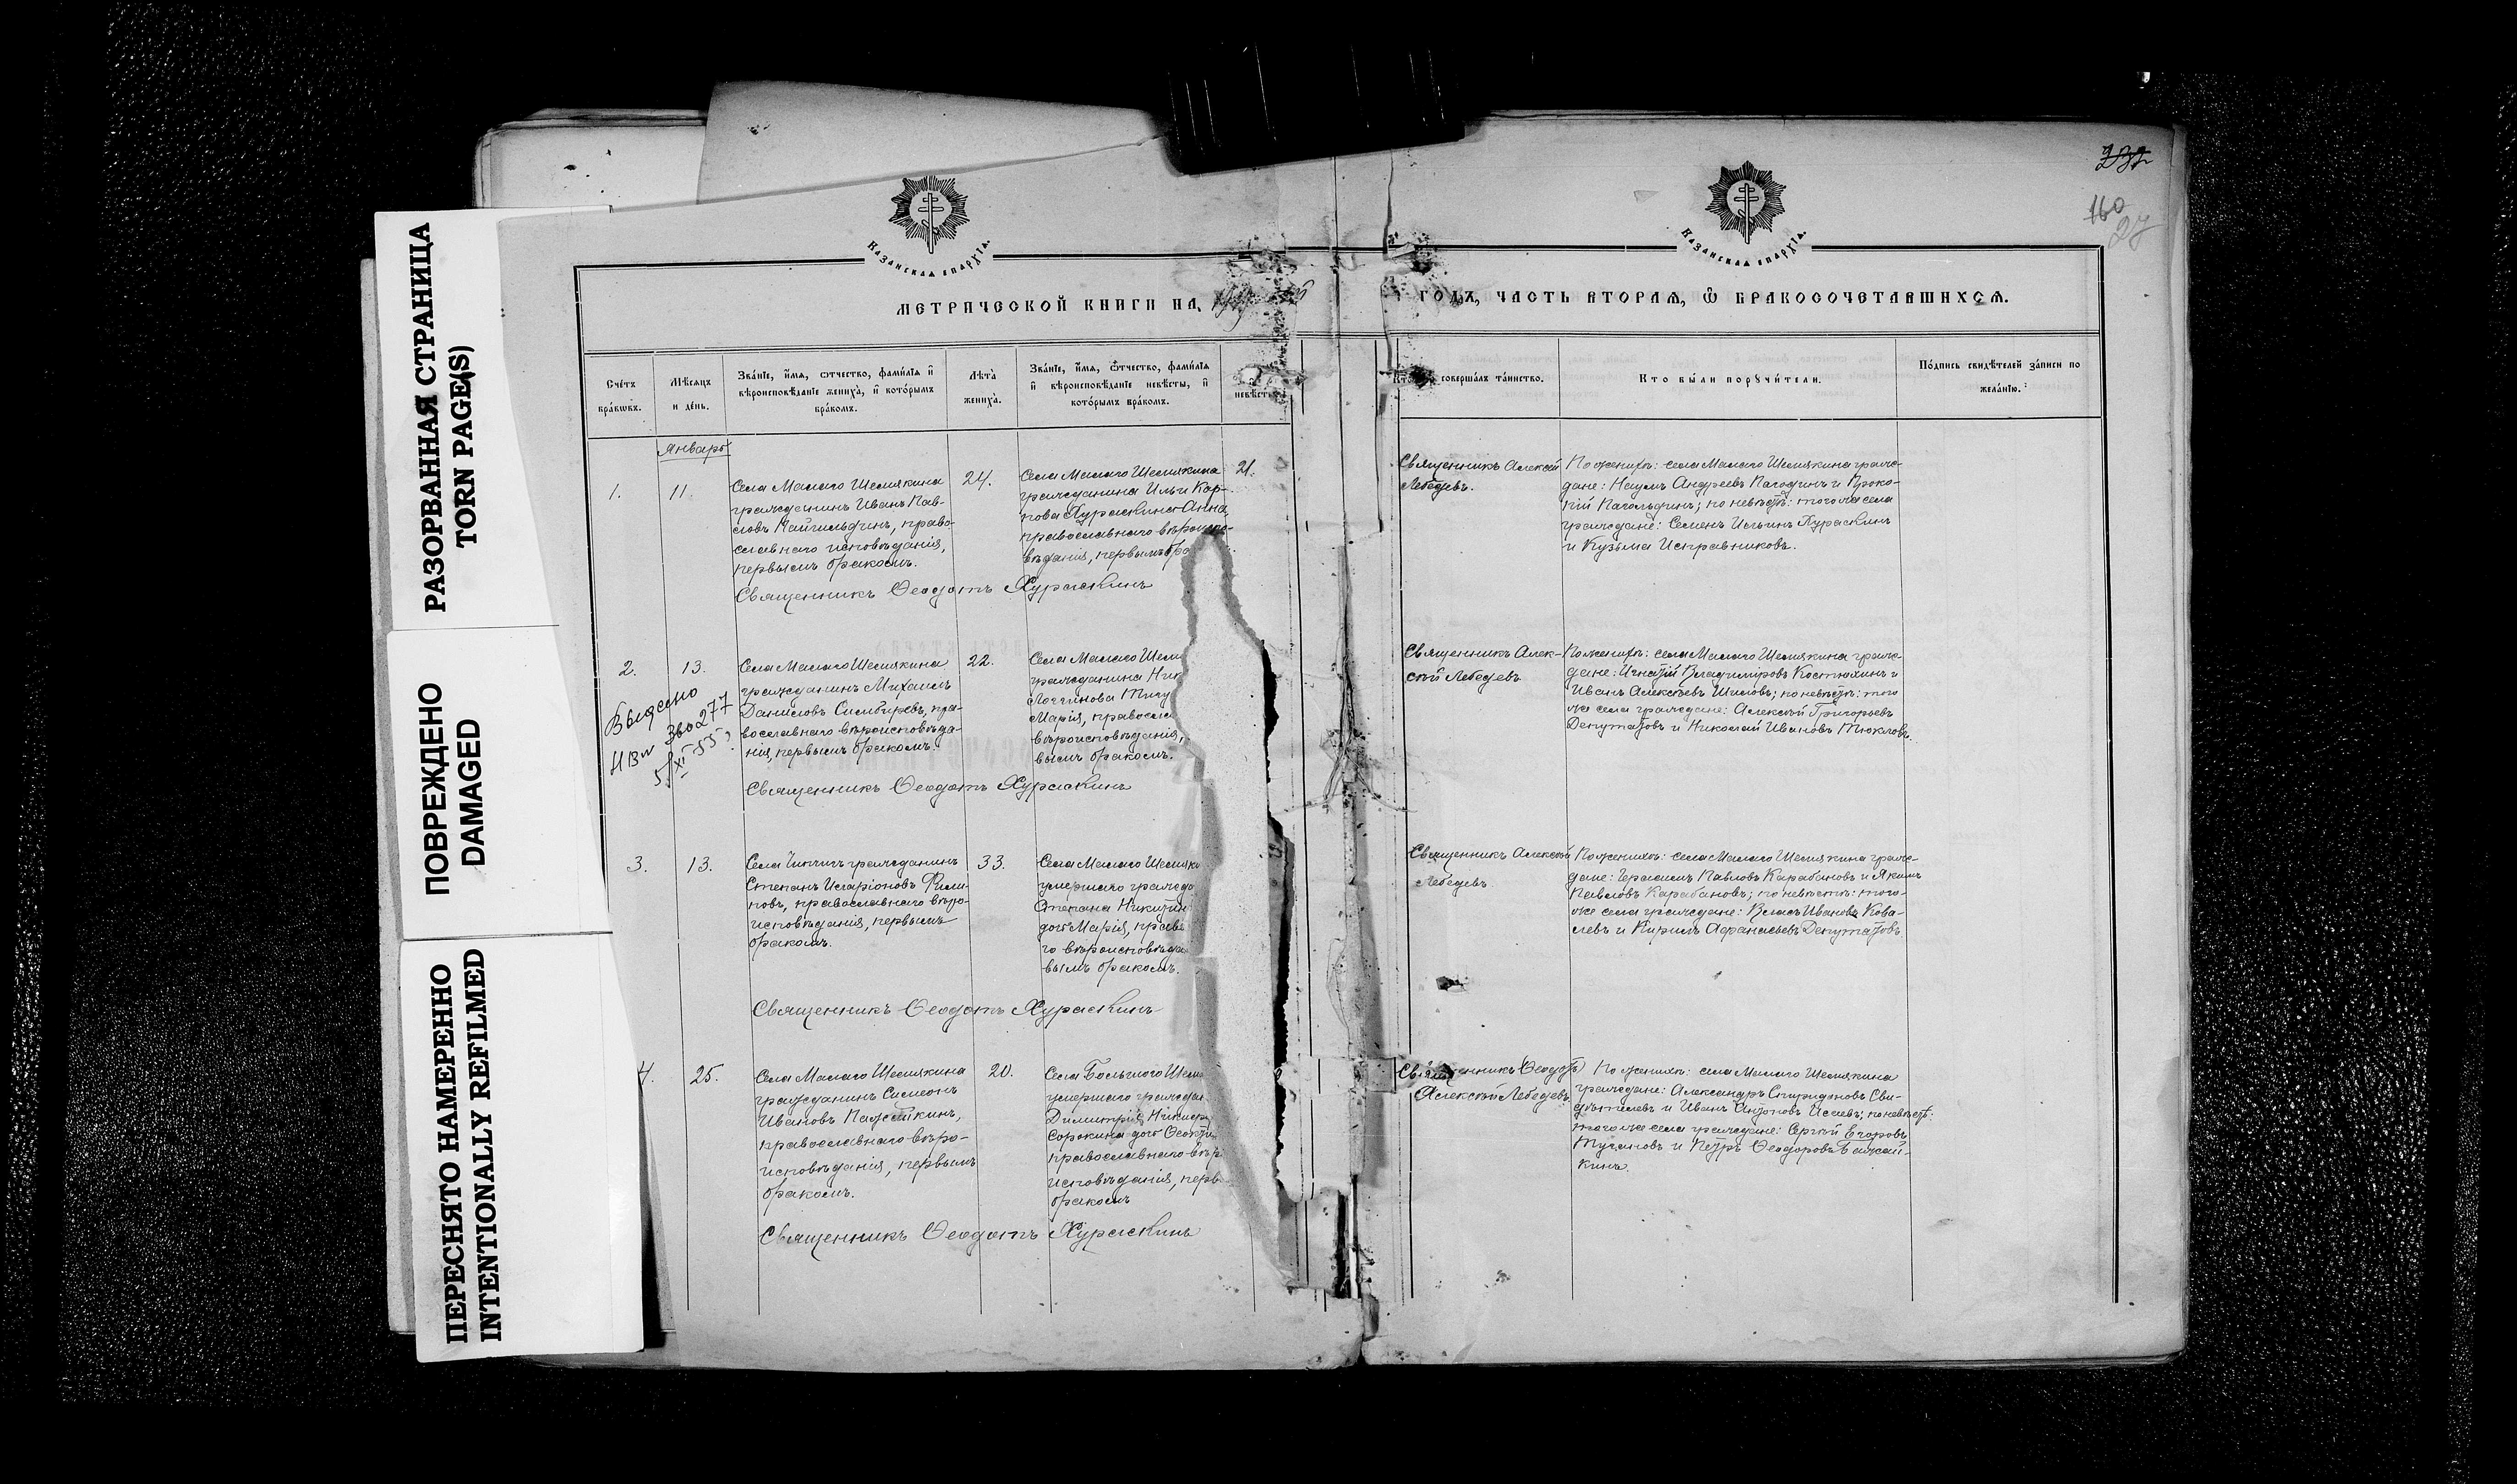 РАЗОРВАННАЯ СТРАНИЦА
TORN PAGE(S)
ПОВРЕЖДЕНО
DAMAGED
ПЕРЕСНЯТО НАМЕРЕННО
INTENTIONALLY REFILMED
232
160
27
Казанская епархїѧ.
Казанская епархїѧ.
МЕТРИЧЕСКОЙ КНИГИ НА
ГОДЪ, ЧАСТЬ ВТОРАЯ, Ѿ БРАКОСОЧЕТАВШИХСЯ.
Счетъ браковъ.
Мѣсяцъ и день.
Званїе, имя, отчество, фамилїя и вѣроисповѣданїе жениха, и которымъ бракомъ.
Лѣта жениха.
Званїе, имя, отчество, фамилїя и вѣроисповѣданїе невѣсты, и которымъ бракомъ.
невѣсты
совершалъ таинство.
Кто были поручители.
Подпись свидѣтелей записи по желанїю.
Январь
1.
11.
Села Малаго Шемякина
гражданинъ Иванъ Пав-
ловъ, право-
славнаго исповѣданія,
первымъ бракомъ.
24.
Села Малаго Шемякина
гражданина Ильи Кар-
пова Хураскина Анна,
православнаго вѣроиспо-
вѣданія, первымъ бра
21.
Священникъ Алексій
Лебедевъ.
По женихѣ: села Малаго Шемякина граж-
дане: Наумъ Андреевъ и Проко-
пій; по невѣстѣ: того же села
граждане: Семенъ Ильинъ Хураскинъ
и Кузьма Исправниковъ.
Священникъ Ѳеодотъ Хураскинъ
2.
13.
Села Малаго Шемякина
гражданинъ Михаилъ
Даниловъ Симбиревъ, пра-
вославнаго вѣроисповѣда-
нія, первымъ бракомъ.
22.
Села Малаго Шем
гражданина Ник
Марія, правосла
вѣроисповѣданія,
вымъ бракомъ.
Священникъ Алек-
сѣй Лебедевъ
По женихѣ: села Малаго Шемякина граж-
дане: Игнатій Владиміровъ Костюхинъ и
Иванъ Алексѣевъ Шиловъ; по невѣстѣ: того
же села граждане: Алексѣй Григорьевъ
Депутатовъ и Николай Ивановъ Тюкловъ.
Выдано
360277
5/XI-55
Священникъ Ѳеодотъ Хураскинъ
3.
13.
Села гражданинъ
Степанъ Иларіоновъ Фили-
повъ, православнаго вѣро-
исповѣданія, первымъ
бракомъ.
33.
Села Малаго Шемяк
умершаго гражда
Степана Никитин
дочь Марія, право
го вѣроисповѣда
вымъ бракомъ.
Священникъ Алексѣй
Лебедевъ
По женихѣ: села Малаго Шемякина граж-
дане: Герасимъ Павловъ Карабановъ и Якимъ
Павловъ Карабановъ; по невѣстѣ: того-
же села граждане: Власъ Ивановъ Кова-
левъ и Кирилъ Афанасьевъ Депутатовъ.
Священникъ Ѳеодотъ Хураскинъ
4.
25.
Села Малаго Шемякина
гражданинъ Симеонъ
Ивановъ,
православнаго вѣро-
исповѣданія, первымъ
бракомъ.
20.
Села Большого Шем
умершаго граждан
Димитрія Никиф
Сорокина дочь
православнаго вѣр
исповѣданія, перв
бракомъ
Священникъ Ѳеодотъ
Алексѣй Лебедевъ
По женихѣ: села Малаго Шемякина
граждане: Александръ Спиридоновъ Сви-
дѣтелевъ и Иванъ Антоновъ Исаевъ; по невѣстѣ:
того же села граждане: Сергѣй Егоровъ
и Петръ Ѳеодоровъ
Священникъ Ѳеодотъ Хураскинъ